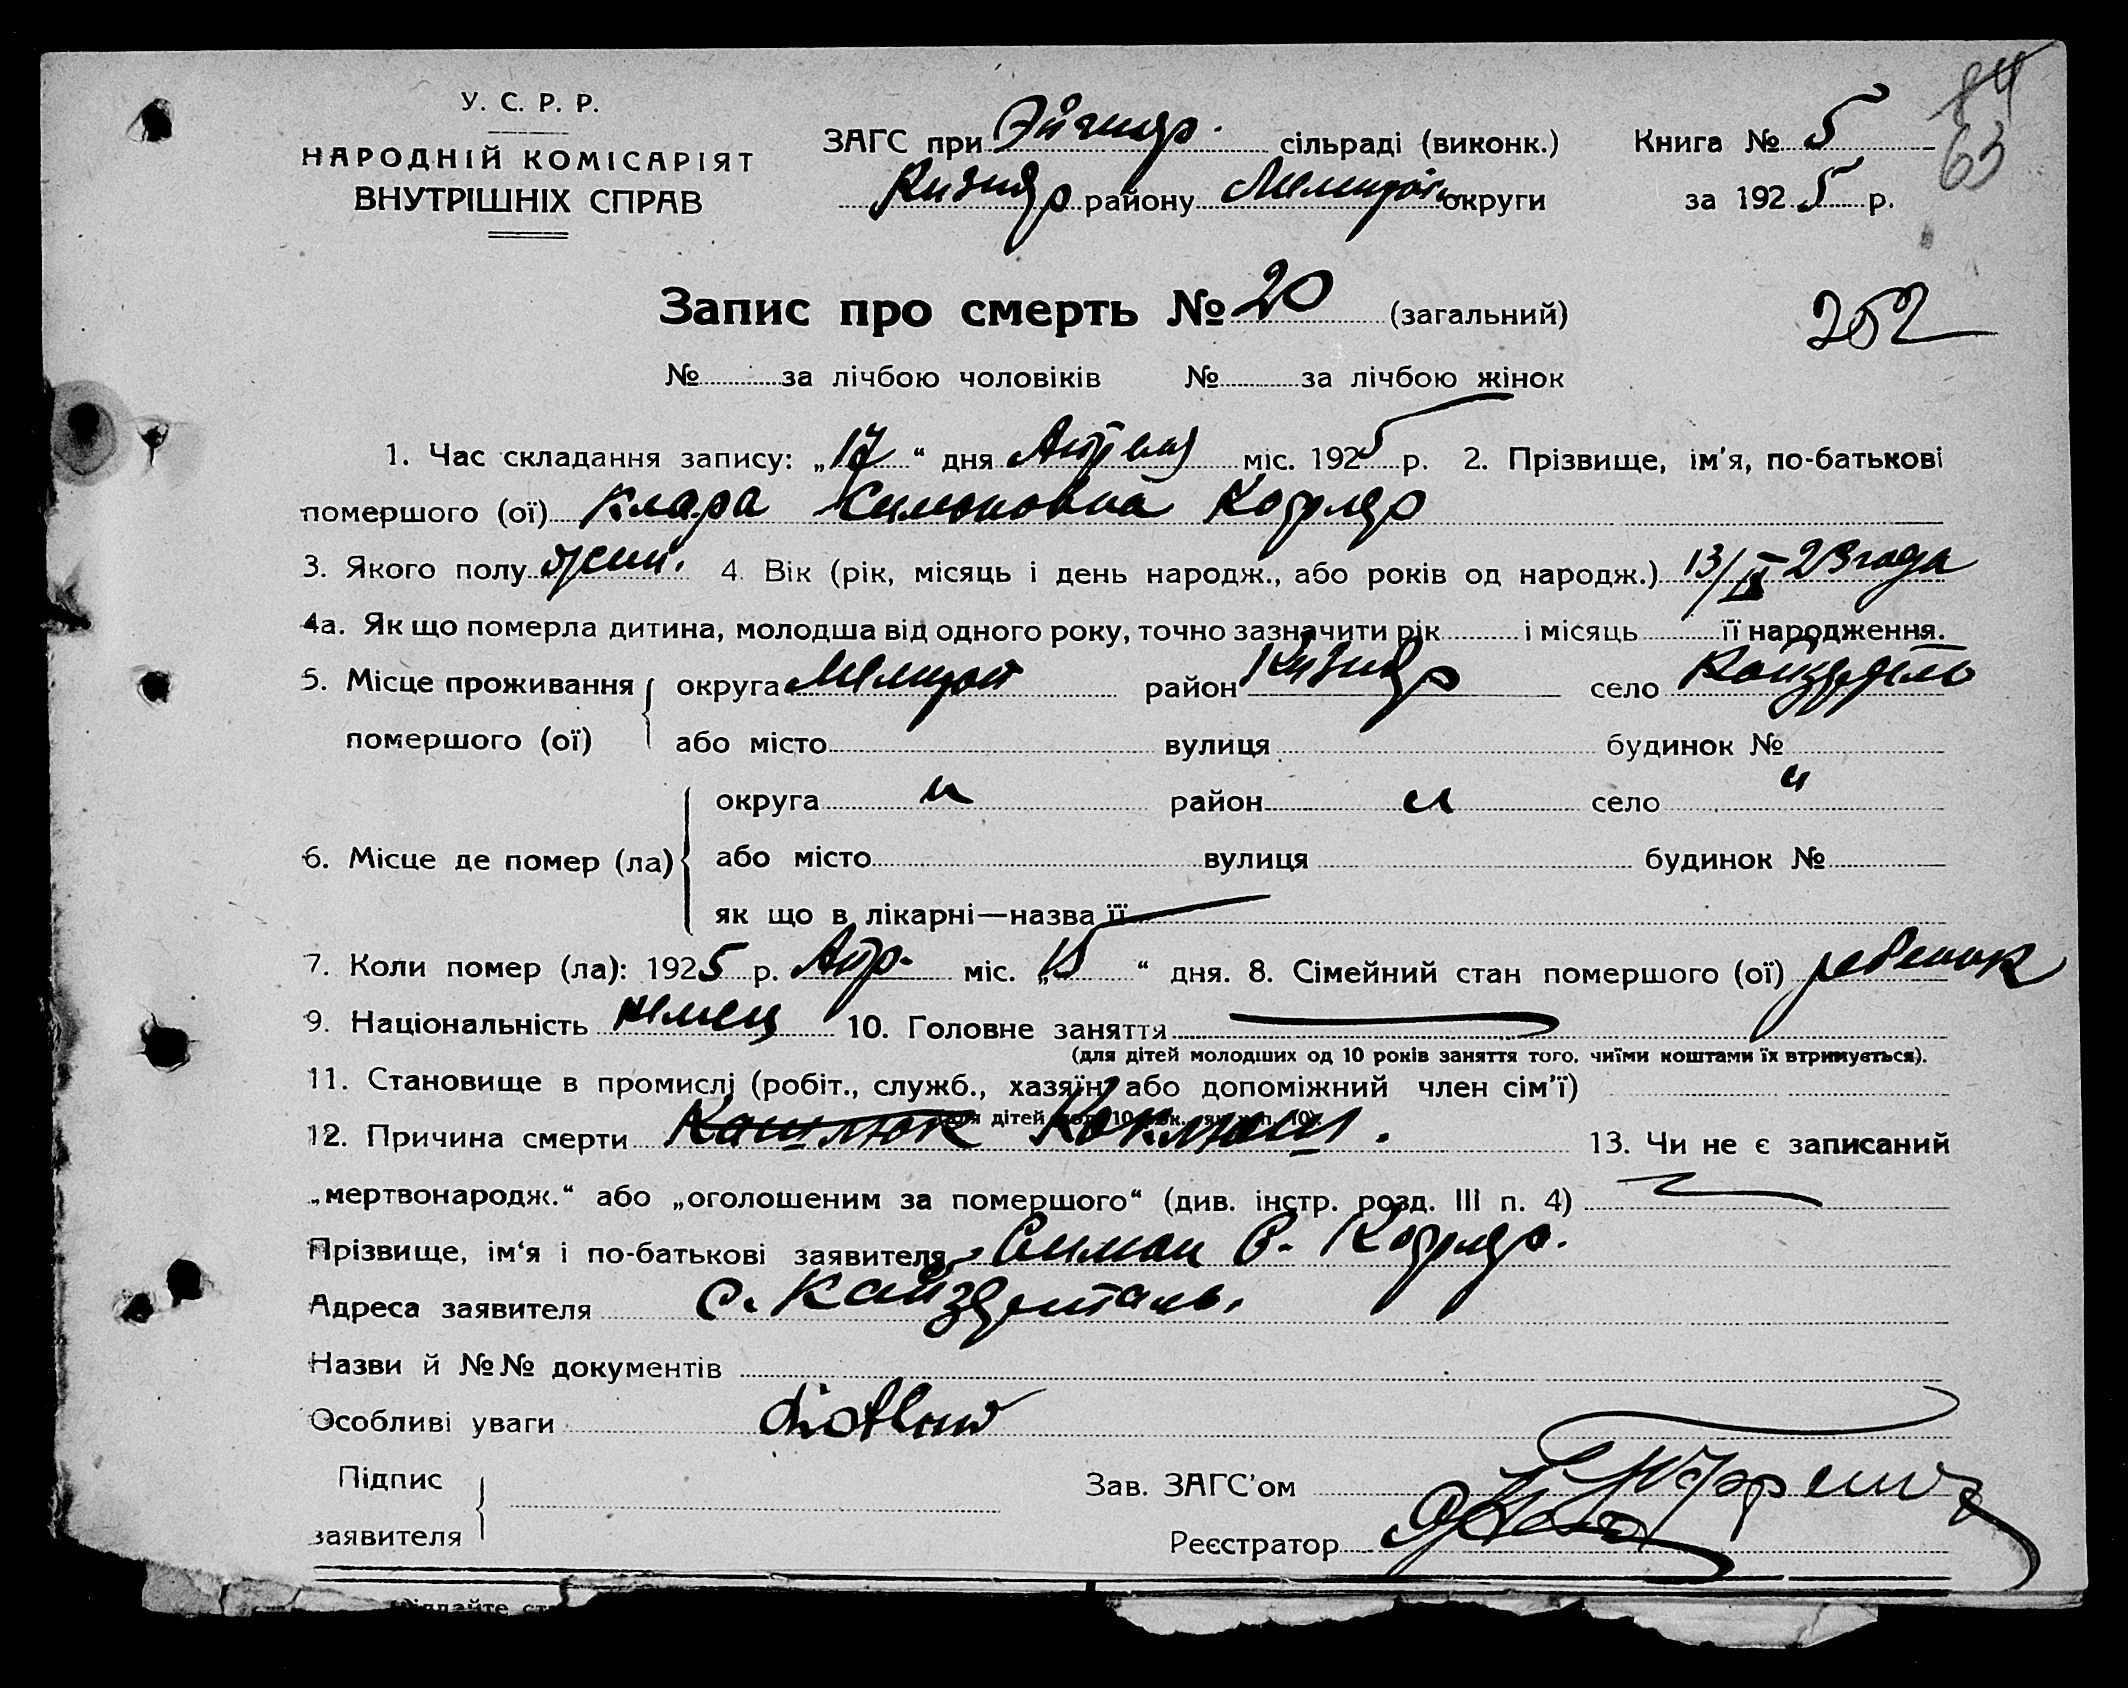 У. С. Р. Р.
НАРОДНІЙ КОМІСАРІЯТ
ВНУТРІШНІХ СПРАВ
ЗАГС при сільраді (виконк.)
району округи
Книга № 5
за 1925 р.
84
63
Запис про смерть № 20 (загальний)
252
№ за лічбою чоловіків № за лічбою жінок
1. Час складання запису: „17“ дня Апреля міс. 1925 р. 2. Прізвище, ім'я, по-батькові
помершого (ої) Клара Симоновна
3. Якого полу жен. 4. Вік (рік, місяць і день народж., або років од народж.) 13/IX 23 года
4а. Як що померла дитина, молодша від одного року, точно зазначити рік і місяць її народження.
5. Місце проживання округа Мелитоп район село
помершого (ої) або місто вулиця будинок №
округа и район и село и
6. Місце де помер (ла) або місто вулиця будинок №
як що в лікарні—назва її
7. Коли помер (ла): 1925 р. Апр. міс. „15“ дня. 8. Сімейний стан помершого (ої) ребенок
9. Національність немец 10. Головне заняття
(для дітей молодших од 10 років заняття того, чиїми коштами їх втримується).
11. Становище в промислі (робіт., служб., хазяїн, або допоміжний член сім'ї)
дітей
12. Причина смерти Кашлюк Коклюш. 13. Чи не є записаний
„мертвонародж.“ або „оголошеним за помершого“ (див. інстр. розд. III п. 4)
Прізвище, ім'я і по-батькові заявителя Симон С.
Адреса заявителя с. Кайзерталь.
Назви й №№ документів
Особливі уваги
Підпис
заявителя
Зав. ЗАГС'ом
Реєстратор